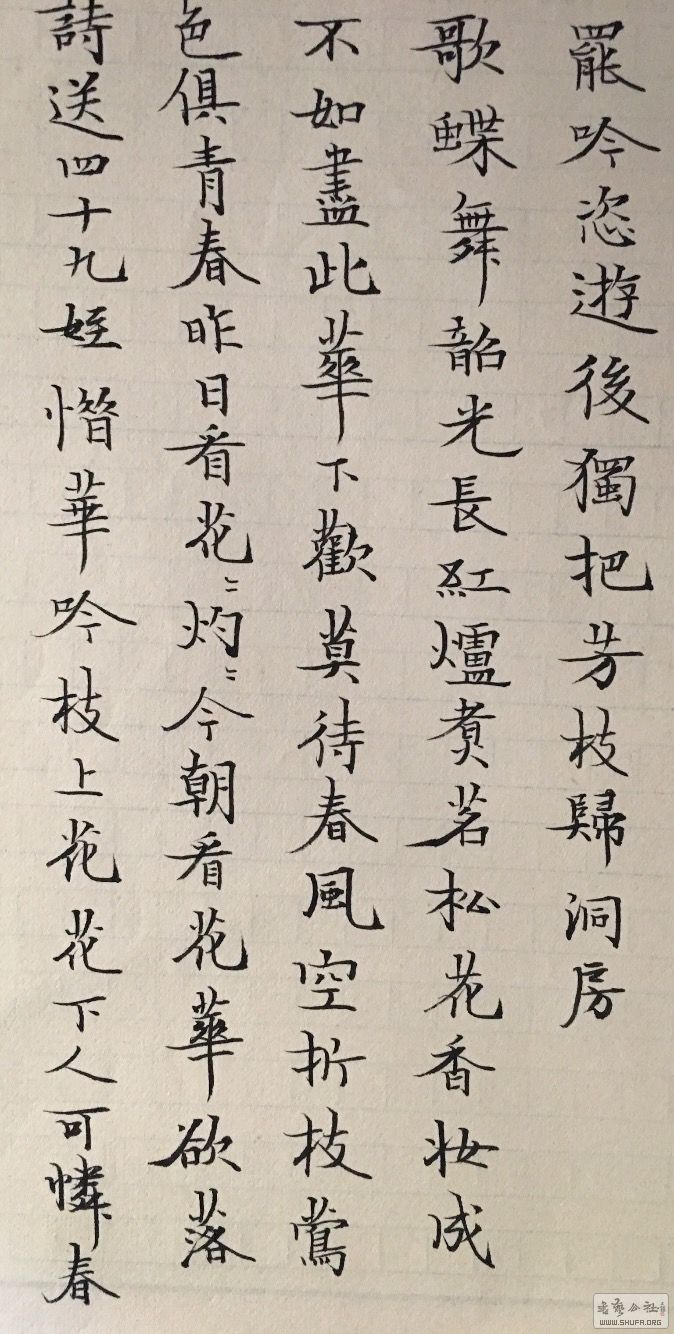 詩送四十九姪惜華吟枝上花花下人可憐春
色俱青春昨日看花〻灼〻今朝看花華欲落
不如盡此華下歡莫待春風空折枝鶯
歌蝶舞韶光長紅爐煮茗松花香妝成
罷吟恣遊後獨把芳枝歸洞房
書藝公社
WWW.SHUFA.ORG